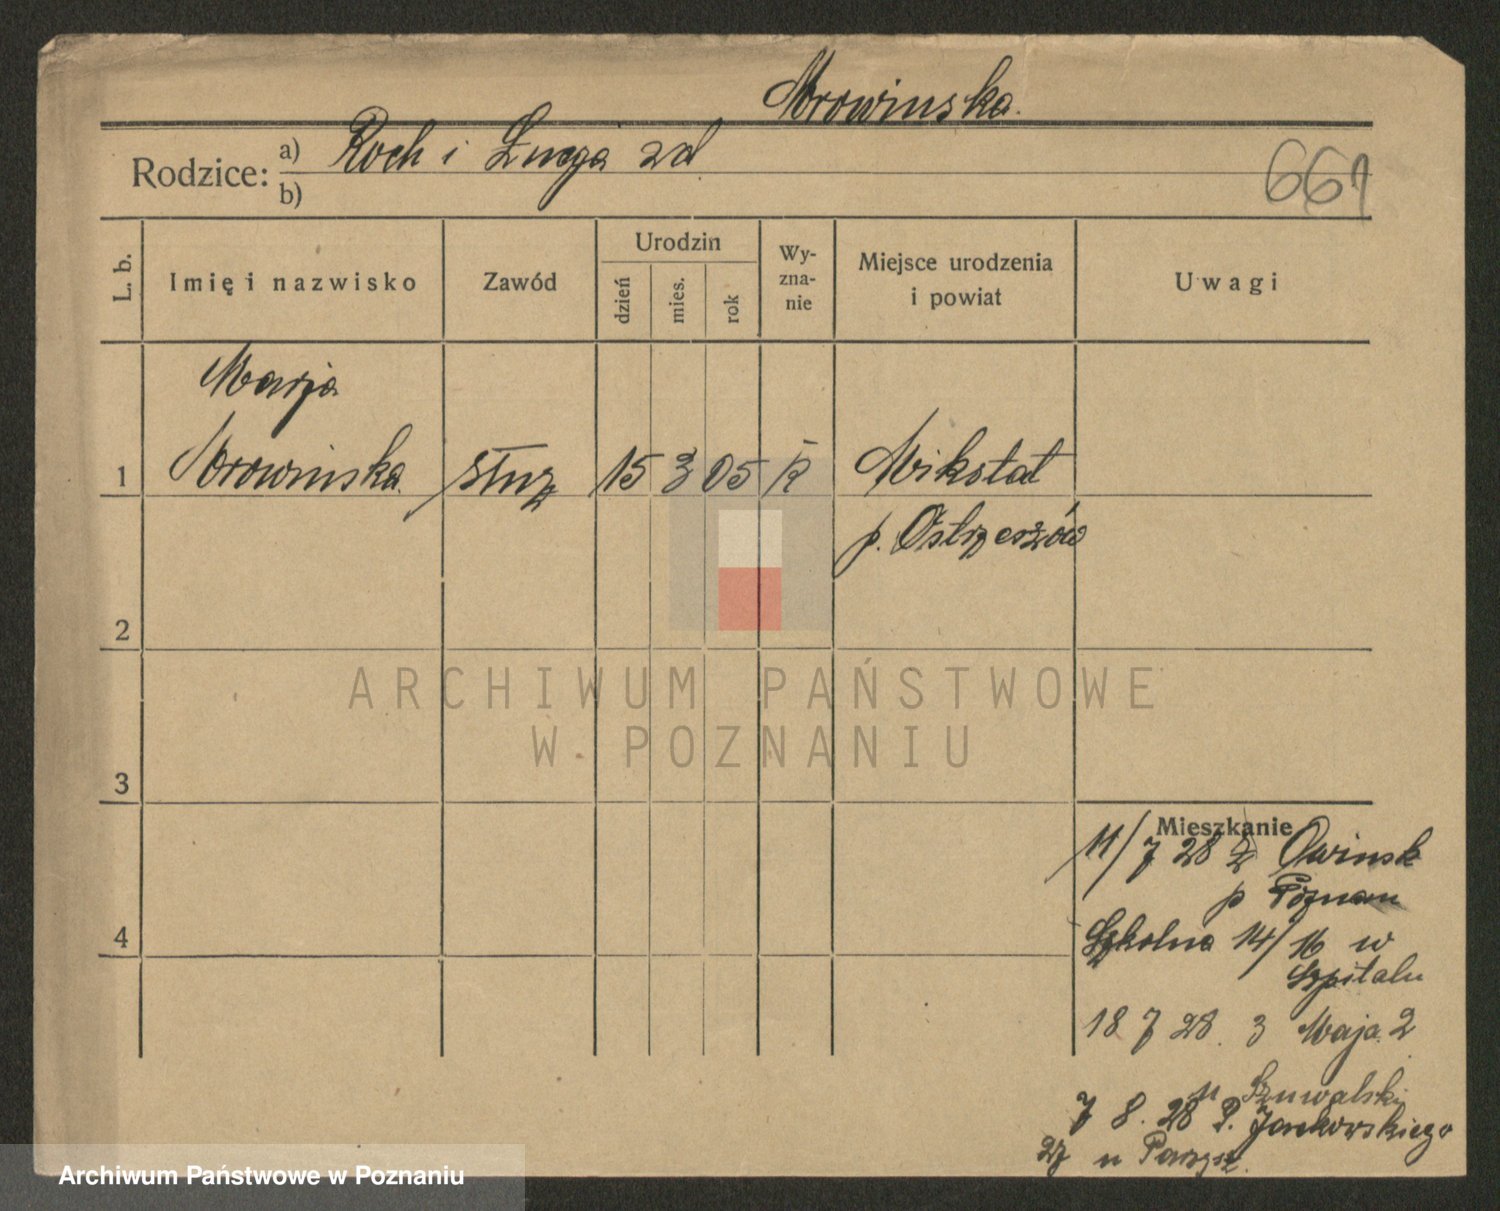 Mrowinska.
Rodzice: a) Roch i Łucja zd
b)
661
L. b.
Imię i nazwisko
Zawód
Urodzin
dzień
mies.
rok
Wy-
zna-
nie
Miejsce urodzenia
i powiat
Uwagi
Marja
1 Mrowinska służ 15 3 05 k Mikstat
p. Ostrzeszów
2
3
4
Mieszkanie
11/7 28 z Owinsk
p Poznam
Szkolna 14/16 w
Szpitalu
18 7 28. 3 Maja 2
u Szuwalski
7 8. 28 P. Jackowskiego
27 u
ARCHIWUM PAŃSTWOWE
W POZNANIU
Archiwum Państwowe w Poznaniu